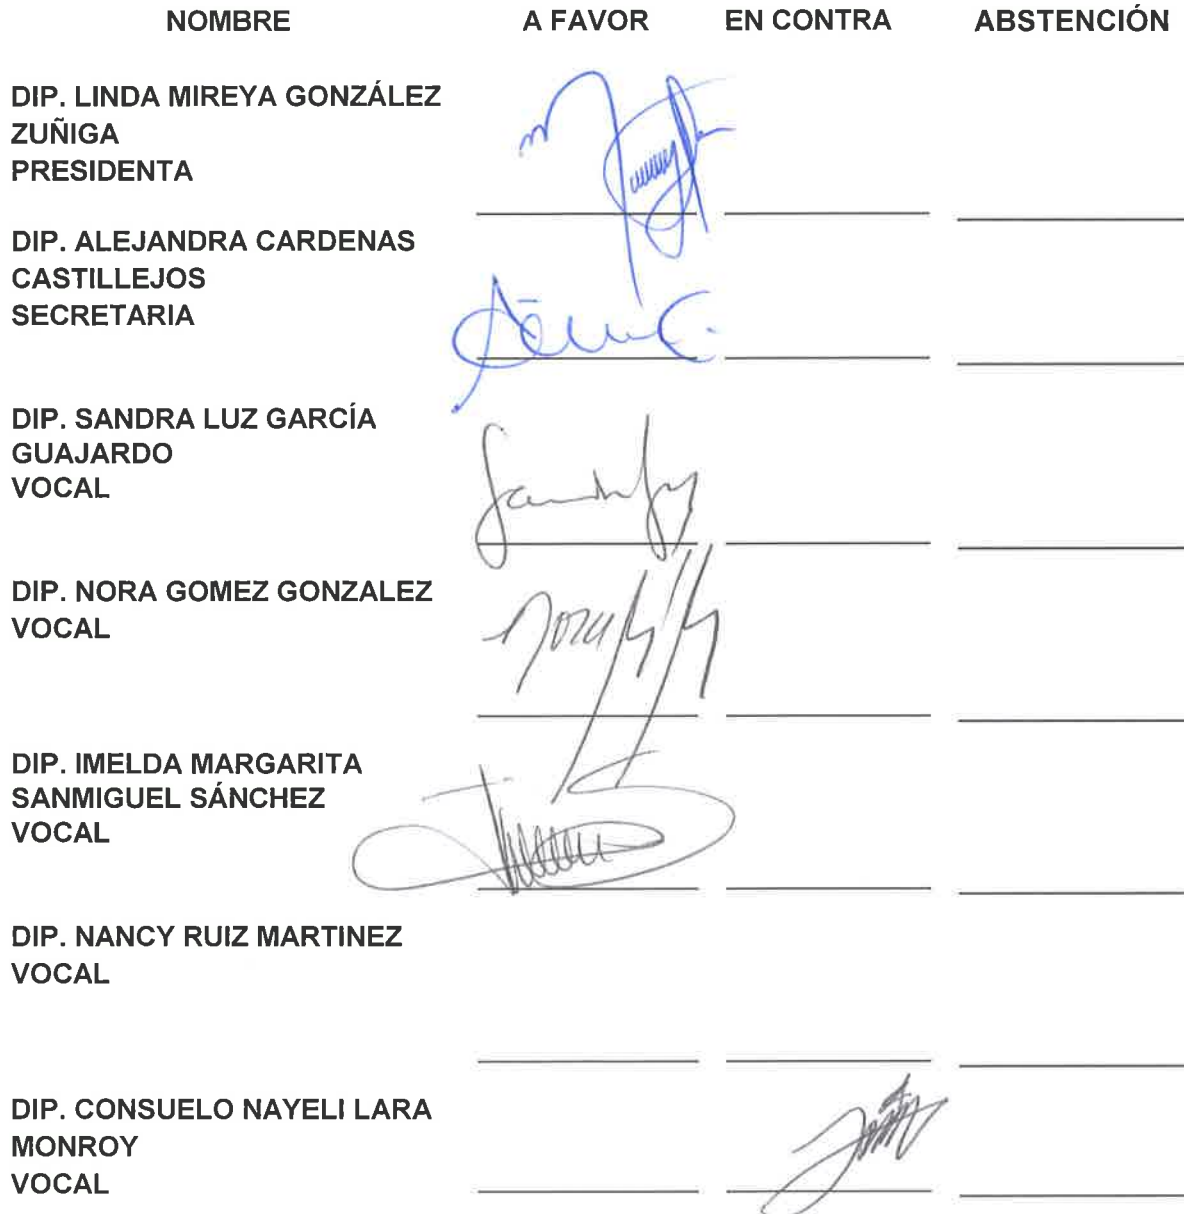 NOMBRE A FAVOR EN CONTRA ABSTENCIÓN
DIP. LINDA MIREYA GONZÁLEZ
ZUÑIGA
PRESIDENTA
DIP. ALEJANDRA CARDENAS
CASTILLEJOS
SECRETARIA
DIP. SANDRA LUZ GARCÍA
GUAJARDO
VOCAL
DIP. NORA GOMEZ GONZALEZ
VOCAL
DIP. IMELDA MARGARITA
SANMIGUEL SÁNCHEZ
VOCAL
DIP. NANCY RUIZ MARTINEZ
VOCAL
DIP. CONSUELO NAYELI LARA
MONROY
VOCAL